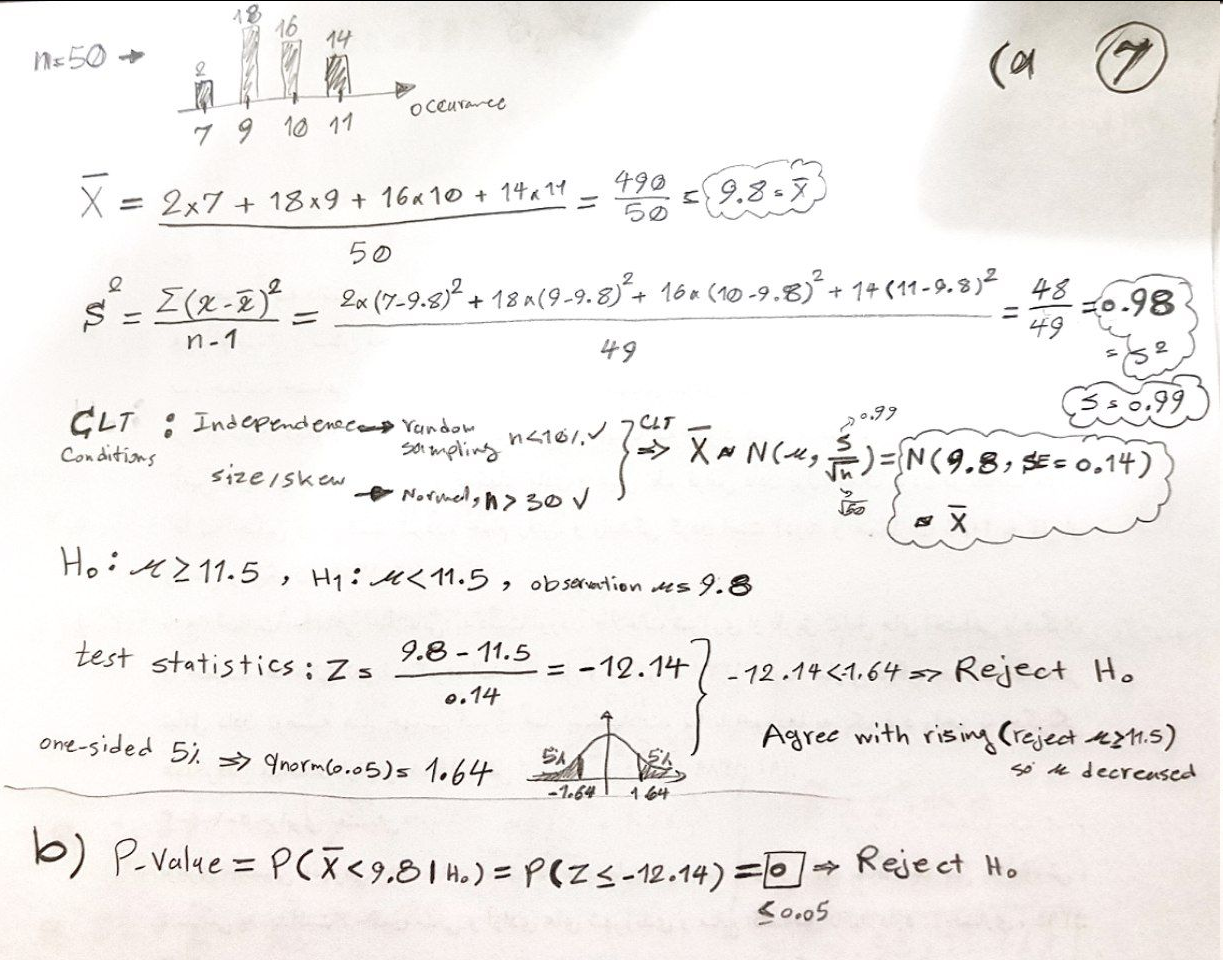 (a 7
n=50 →
2 18 16 14
7 9 10 11 occurance
X̄ = (2×7 + 18×9 + 16×10 + 14×11)/50 = 490/50 = 9.8 = x̄
S² = Σ(x-x̄)²/(n-1) = (2×(7-9.8)² + 18×(9-9.8)² + 16×(10-9.8)² + 14(11-9.8)²)/49 = 48/49 = 0.98 = S²
S = 0.99
CLT Conditions : Independence → random sampling n<10% ✓
size/skew → Normal, n > 30 ✓
} CLT ⇒ X̄ ≈ N(μ, S/√n) = N(9.8, SE = 0.14) ≈ X̄
0.99
√50
H₀: μ ≥ 11.5 , H₁: μ < 11.5 , observation μ = 9.8
test statistics : Z = (9.8 - 11.5)/0.14 = -12.14 } -12.14 < -1.64 => Reject H₀
one-sided 5% ⇒ qnorm(0.05) = 1.64
5% 5%
-1.64 1.64
Agree with rising (reject μ≥11.5)
so μ decreased
b) P-value = P(X̄ < 9.8 | H₀) = P(Z ≤ -12.14) = 0 ⇒ Reject H₀
≤ 0.05